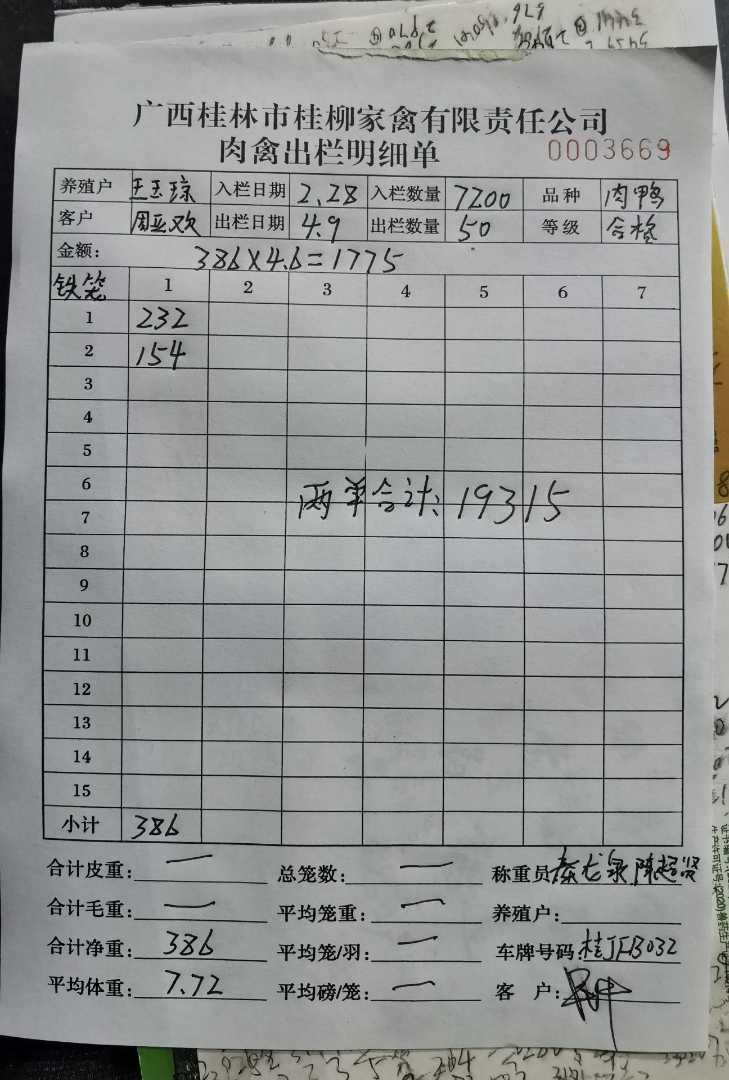 广西桂林市桂柳家禽有限责任公司
肉禽出栏明细单 0003669
养殖户 王玉琼 入栏日期 2.28 入栏数量 7200 品种 肉鸭
客户 周亚欢 出栏日期 4.9 出栏数量 50 等级 合格
金额: 386×4.6=1775
铁笼 1 2 3 4 5 6 7
1 232
2 154
3
4
5
6
两单合计: 19315
7
8
9
10
11
12
13
14
15
小计 386
合计皮重: 一 总笼数: 一 称重员: 秦龙泉 陈超贤
合计毛重: 一 平均笼重: 一 养殖户:
合计净重: 386 平均笼/羽: 一 车牌号码: 桂JFB032
平均体重: 7.72 平均磅/笼: 一 客 户: